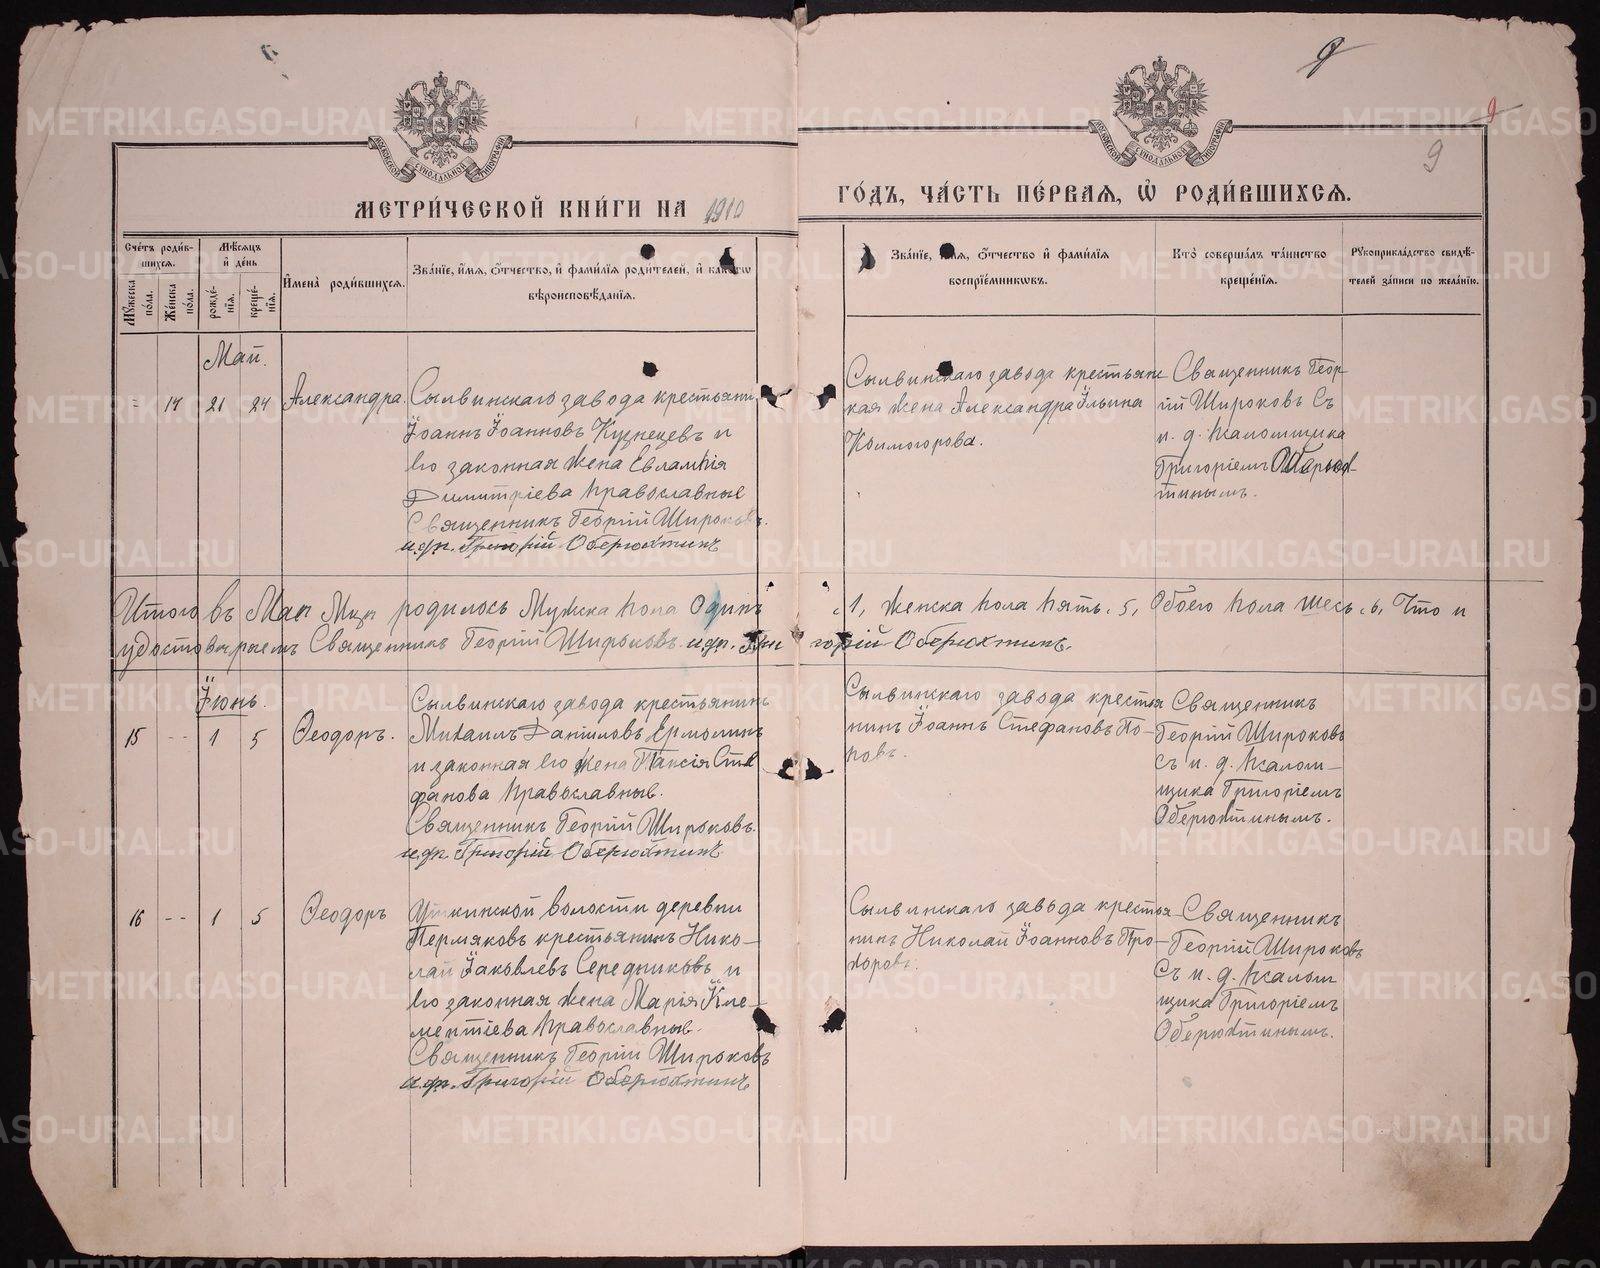 9
9
9
МОСКОВСКОЙ СѴНОДАЛЬНОЙ ТИПОГРАФІИ
МОСКОВСКОЙ СѴНОДАЛЬНОЙ ТИПОГРАФІИ
МЕТРИ́ЧЕСКОЙ КНИ́ГИ НА 1910
ГО́ДЪ, ЧА́СТЬ ПЕ́РВАѦ, Ѽ РОДИ́ВШИХСѦ.
Сче́тъ роди́в-
шихсѧ.
Мꙋ́жеска
по́ла.
Же́нска
по́ла.
Мѣ́сѧцъ
и҆ де́нь
рожде́-
нїѧ.
креще́-
нїѧ.
И҆мена̀ роди́вшихсѧ.
Зва́нїе, и҆́мѧ, ѻ҆́тчество, и҆ фами́лїѧ роди́телей, и҆ како́гѡ
вѣроисповѣ́данїѧ.
Зва́нїе, и҆́мѧ, ѻ҆́тчество и҆ фами́лїѧ
воспрїе́мникѡвъ.
Кто̀ соверша́лъ та́инство
креще́нїѧ.
Рꙋкоприкла́дство свидѣ́-
телей за́писи по жела́нїю.
Май.
14 21 24 Александра.
Сылвинскаго завода крестьяни
Іоаннъ Іоанновъ Кузнецевъ и
его законная жена Евлампія
Димитріева православные
Священникъ Георгій Широковъ.
и.д.п. Григорій Оберюхтинъ
Сылвинскаго завода крестьянс
кая жена Александра Ильина
Колмогорова.
Священникъ Геор
гій Широковъ Съ
и. д. псаломщика
Григоріемъ Оберюх
тинымъ.
Итого въ Маѣ Мцѣ родилось Мужска пола Одинъ .1, женска пола пять .5, Обоего пола шесь .6, Что и
удостовѣряемъ Священникъ Георгій Широковъ. и.д.п. Григорій Оберюхтинъ.
Іюнь.
15 -- 1 5 Ѳеодоръ.
Сылвинскаго завода крестьянинъ
Михаилъ Даніиловъ Ермолинъ
и законная его жена Таисія Сте
фанова православные.
Священникъ Георгій Широковъ.
и.д.п. Григорій Оберюхтинъ
Сылвинскаго завода крестья
нинъ Іоаннъ Стефановъ По-
повъ.
Священникъ
Георгій Широковъ
Съ и. д. псалом-
щика Григоріемъ
Оберюхтинымъ.
16 -- 1 5 Ѳеодоръ
Уткинской волости деревни
Пермяковъ крестьянинъ Нико-
лай Іаковлевъ Середниковъ и
его законная жена Марія Кле-
ментіева православные.
Священникъ Георгій Широковъ
и.д.п. Григорій Оберюхтинъ
Сылвинскаго завода крестья
нинъ Николай Іоанновъ Про-
хоровъ.
Священникъ
Георгій Широковъ
Съ и. д. псалом
щика Григоріемъ
Оберюхтинымъ.
METRIKI.GASO-URAL.RU